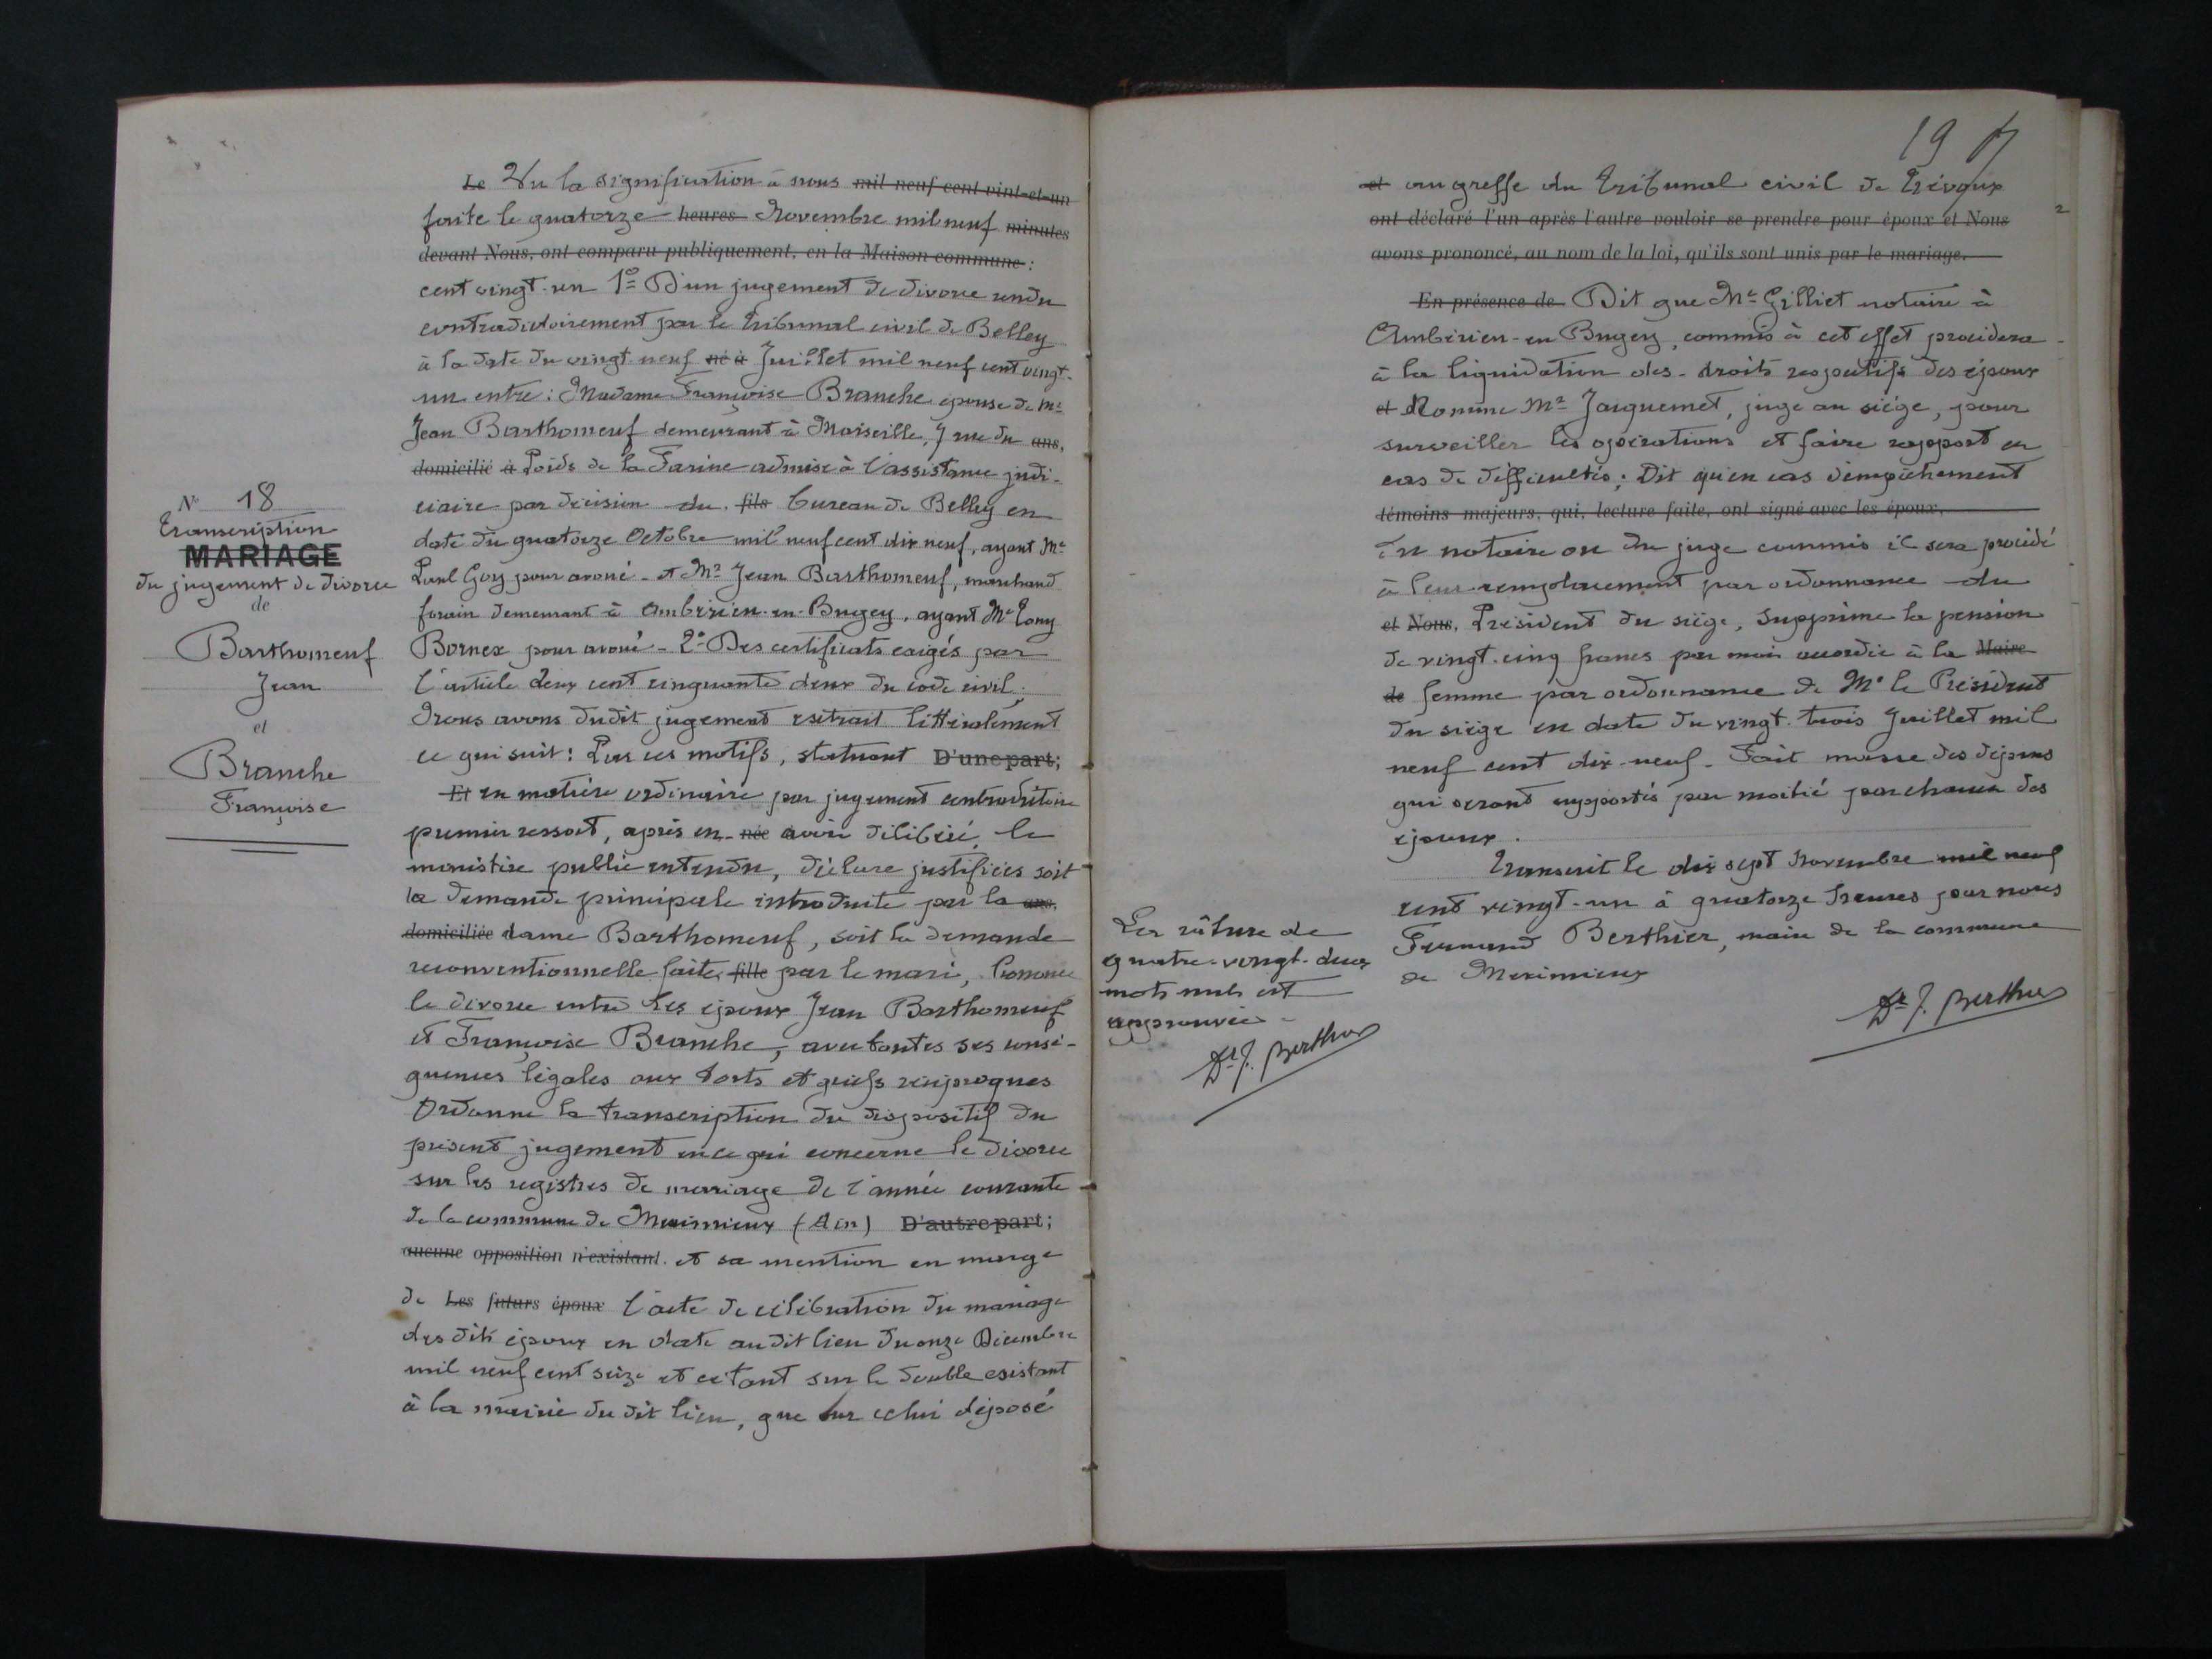 N° 18
Transcription
MARIAGE
du jugement de divorce
de
Barthomeuf
Jean
et
Branche
Françoise
Le Vu la signification à nous mil neuf cent vint-et-un
faite le quatorze heures Novembre mil neuf minutes
devant Nous, ont comparu publiquement, en la Maison commune :
cent vingt-un 1° D'un jugement de divorce rendu
contradictoirement par le Tribunal civil de Belley
à la date du vingt-neuf né à Juillet mil neuf cent vingt-
un entre : Madame Françoise Branche épouse de Mr
Jean Barthomeuf demeurant à Marseille, 7 rue du ans,
domicilié à Poids de la Farine admise à l'assistance judi-
ciaire par décision du fils bureau de Belley en
date du quatorze Octobre mil neuf cent dix neuf, ayant Me
Paul Goy pour avoué - et Mr Jean Barthomeuf, marchand
forain demeurant à Ambérieu-en-Bugey, ayant Me Tony
Bornex pour avoué - 2° Des certificats exigés par
l'article deux cent cinquante deux du code civil.
Nous avons dudit jugement extrait littéralement
ce qui suit : Par ces motifs, statuant D'une part;
Et en matière ordinaire par jugement contradictoire
premier ressort, après en née avoir délibéré, le
ministère public entendu, déclare justifiées soit
la demande principale introduite par la ans,
domiciliée dame Barthomeuf, soit la demande
reconventionnelle faite fille par le mari, Prononce
le divorce entre les époux Jean Barthomeuf
et Françoise Branche, avec toutes ses consé-
quences légales aux torts et griefs réciproques
Ordonne la transcription du dispositif du
présent jugement en ce qui concerne le divorce
sur les registres de mariage de l'année courante
de la commune de Meximieux (Ain) D'autre part;
aucune opposition n'existant. et sa mention en marge
de Les futurs époux l'acte de célébration du mariage
des dits époux en date au dit lieu du onze Décembre
mil neuf cent seize et ce tant sur le double existant
à la mairie du dit lieu, que sur celui déposé
19
et au greffe du Tribunal civil de Trévoux
ont déclaré l'un après l'autre vouloir se prendre pour époux et Nous
avons prononcé, au nom de la loi, qu'ils sont unis par le mariage.
En présence de Dit que Me Gilliet notaire à
Ambérieu-en Bugey, commis à cet effet procédera
à la liquidation des droits respectifs des époux
et Nomme Mr Jacquemet, juge au siège, pour
surveiller les opérations et faire rapport en
cas de difficultés ; Dit qu'en cas d'empêchement
témoins majeurs, qui, lecture faite, ont signé avec les époux,
du notaire ou du juge commis il sera procédé
à leur remplacement par ordonnance du
et Nous, Président du siège, Supprime la pension
de vingt-cinq francs par mois accordée à la Maire
de femme par ordonnance de Mr le Président
du siège en date du vingt-trois Juillet mil
neuf cent dix-neuf - Fait masse des dépens
qui seront supportés par moitié par chacun des
époux.
Transcrit le dix sept Novembre mil neuf
cent vingt-un à quatorze heures par nous
Fernand Berthier, maire de la commune
de Meximieux
Dr F. Berthier
La râture de
quatre-vingt-deux
mots nuls est
approuvée -
Dr F. Berthier